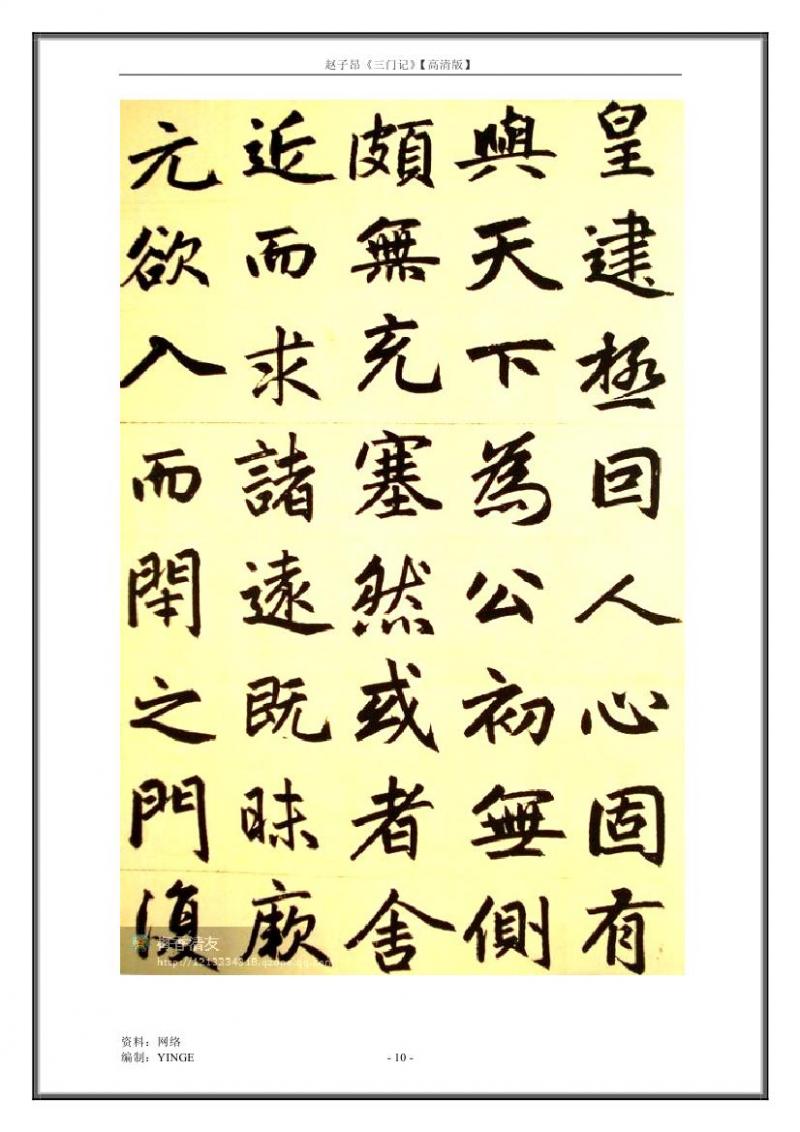 赵子昂《三门记》【高清版】
皇建極回人心固有
與天下為公初無側
頗無充塞然或者舍
近而求諸遠既昧厥
元欲入而閈之門須
http://1213334318.qzone.qq.com
资料：网络
编制：YINGE
- 10 -